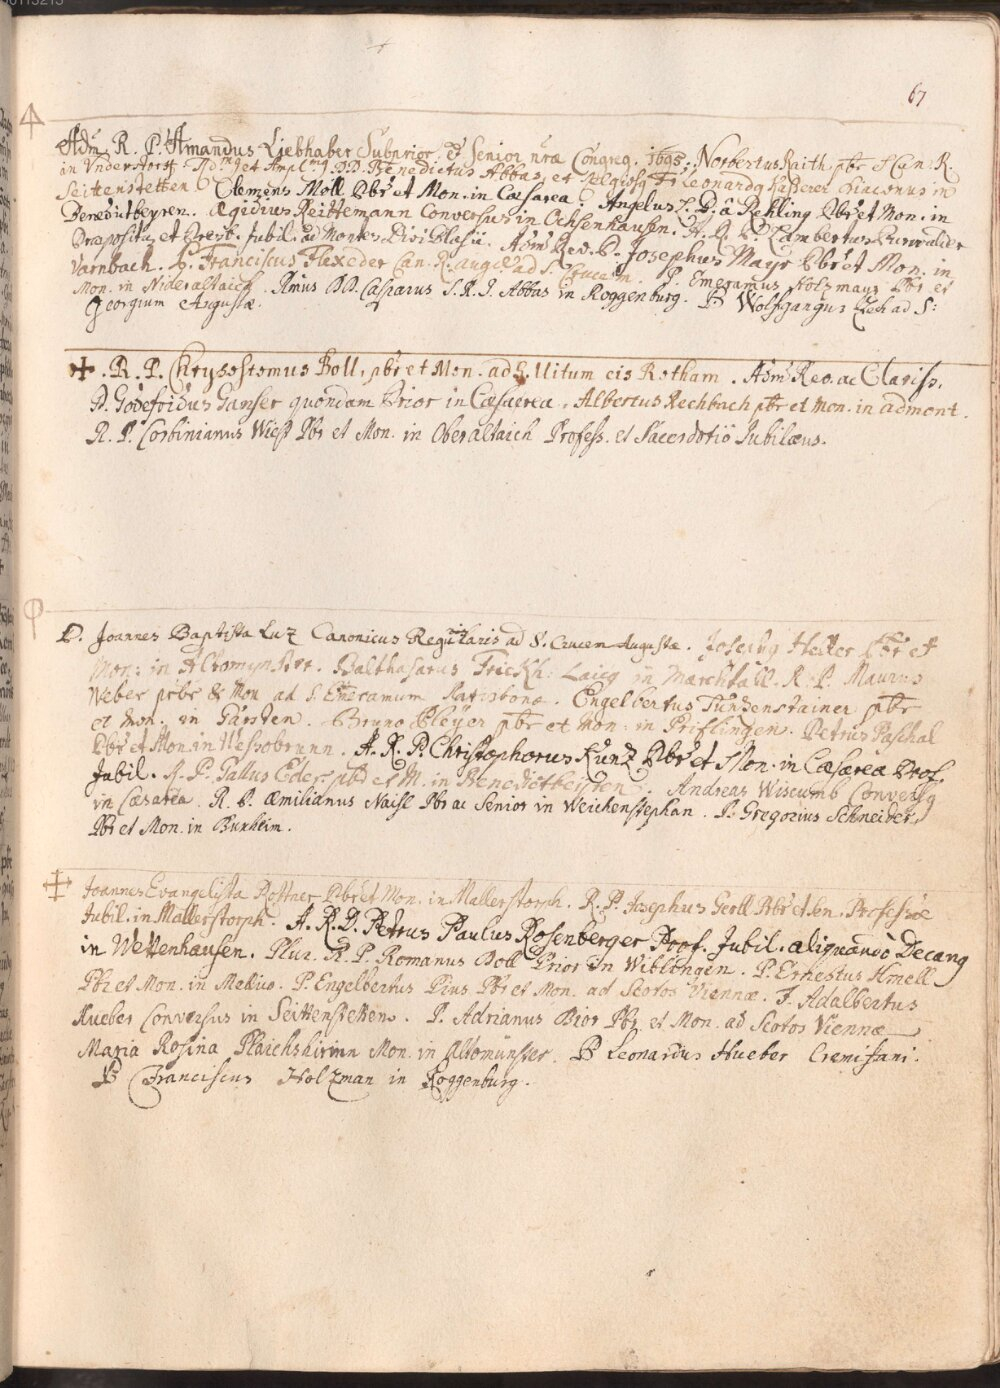 67
Adm. R. P. Amandus Liebhaber Subprior & Senior nrae Congreg. 1695. Norbertus Raith. pbr. Can. R.
in Understorff. Benedictus Abbas, et Leonardg Diaconus in
Seittenstetten. Clemens Moll Pbr et Mon. in Caesarea. Angelus L. B. à Rehling Pbr et Mon. in
Benedictbeyren. Aegidius Reittemann Conversus in Ochsenhausen. Lambertus
Praepositus et Presb. Jubil. ad Montes Divi Blasii. Adm Rev. P. Josephus Mayr Pbr et Mon. in
Varnbach. Franciscus Flexeder Can. R. Aug. ad S. Crucem. P. Emeramus Holzmayr Pbr et
Mon. in Nideraltaich. Rmus DD. Casparus S. R. I. Abbas in Roggenburg. Wolfgangus Zech ad S:
Georgium Augustae.
R. P. Chrysostomus Boll, pbr et Mon. ad S. Vitum cis Rotham. Adm Rev. ac Clariss.
P. Godefridus Ganser quondam Prior in Caesarea. Albertus Rechbach pbr et mon. in admont.
R. P. Corbinianus Wiest Pbr et Mon. in Oberaltaich Profess. et Sacerdotio Jubilaeus.
D. Joannes Baptista Luz Canonicus Regularis ad S. Crucem Augustae. Josephg Heiter Pbr et
Mon: in Altomynster. Balthasarus Frickh: Laicg in Marchtall. R. P. Maurus
Weber prbr & Mon ad S. Emeramum Ratisbonae. Engelbertus Tunzenstainer pbr
et mon. in Garsten. Bruno Pleyer pbr et mon: in Priflingen. Petrus Paschal
Pbr et Mon. in Wessobrunn. A. R. P. Christophorus Kunz Pbr et Mon. in Caesarea Prof.
Jubil. R. P. Gallus Eder pbr et M. in Benedictbeyren. Andreas Conversg
in Caesarea. R. P. Aemilianus Naisl Pbr ac Senior in Weichenstephan. P. Gregorius Schneider,
Pbr et Mon. in Buxheim.
Joannes Evangelista Rottner Pbr et Mon. in Mallerstorph. R. P. Josephus Gerll Pbr et Sen. Professõe
Jubil. in Mallerstorph. A. R. D. Petrus Paulus Rosenberger Prof. Jubil. aliquando Decang
in Wettenhausen. Plur. R. P. Romanus Boll Prior in Wiblingen. P. Ernestus Hmell
Pbr et Mon. in Mellico. P. Engelbertus Pius Pbr et Mon. ad Scotos Viennae. F. Adalbertus
Hueber Conversus in Seittenstetten. P. Adrianus Bior Pbr et Mon. ad Scotos Viennae
Maria Rosina Plaichshirnn Mon. in Altomünster. Leonardus Hueber Cremifani.
Franciscus Holzman in Roggenburg.